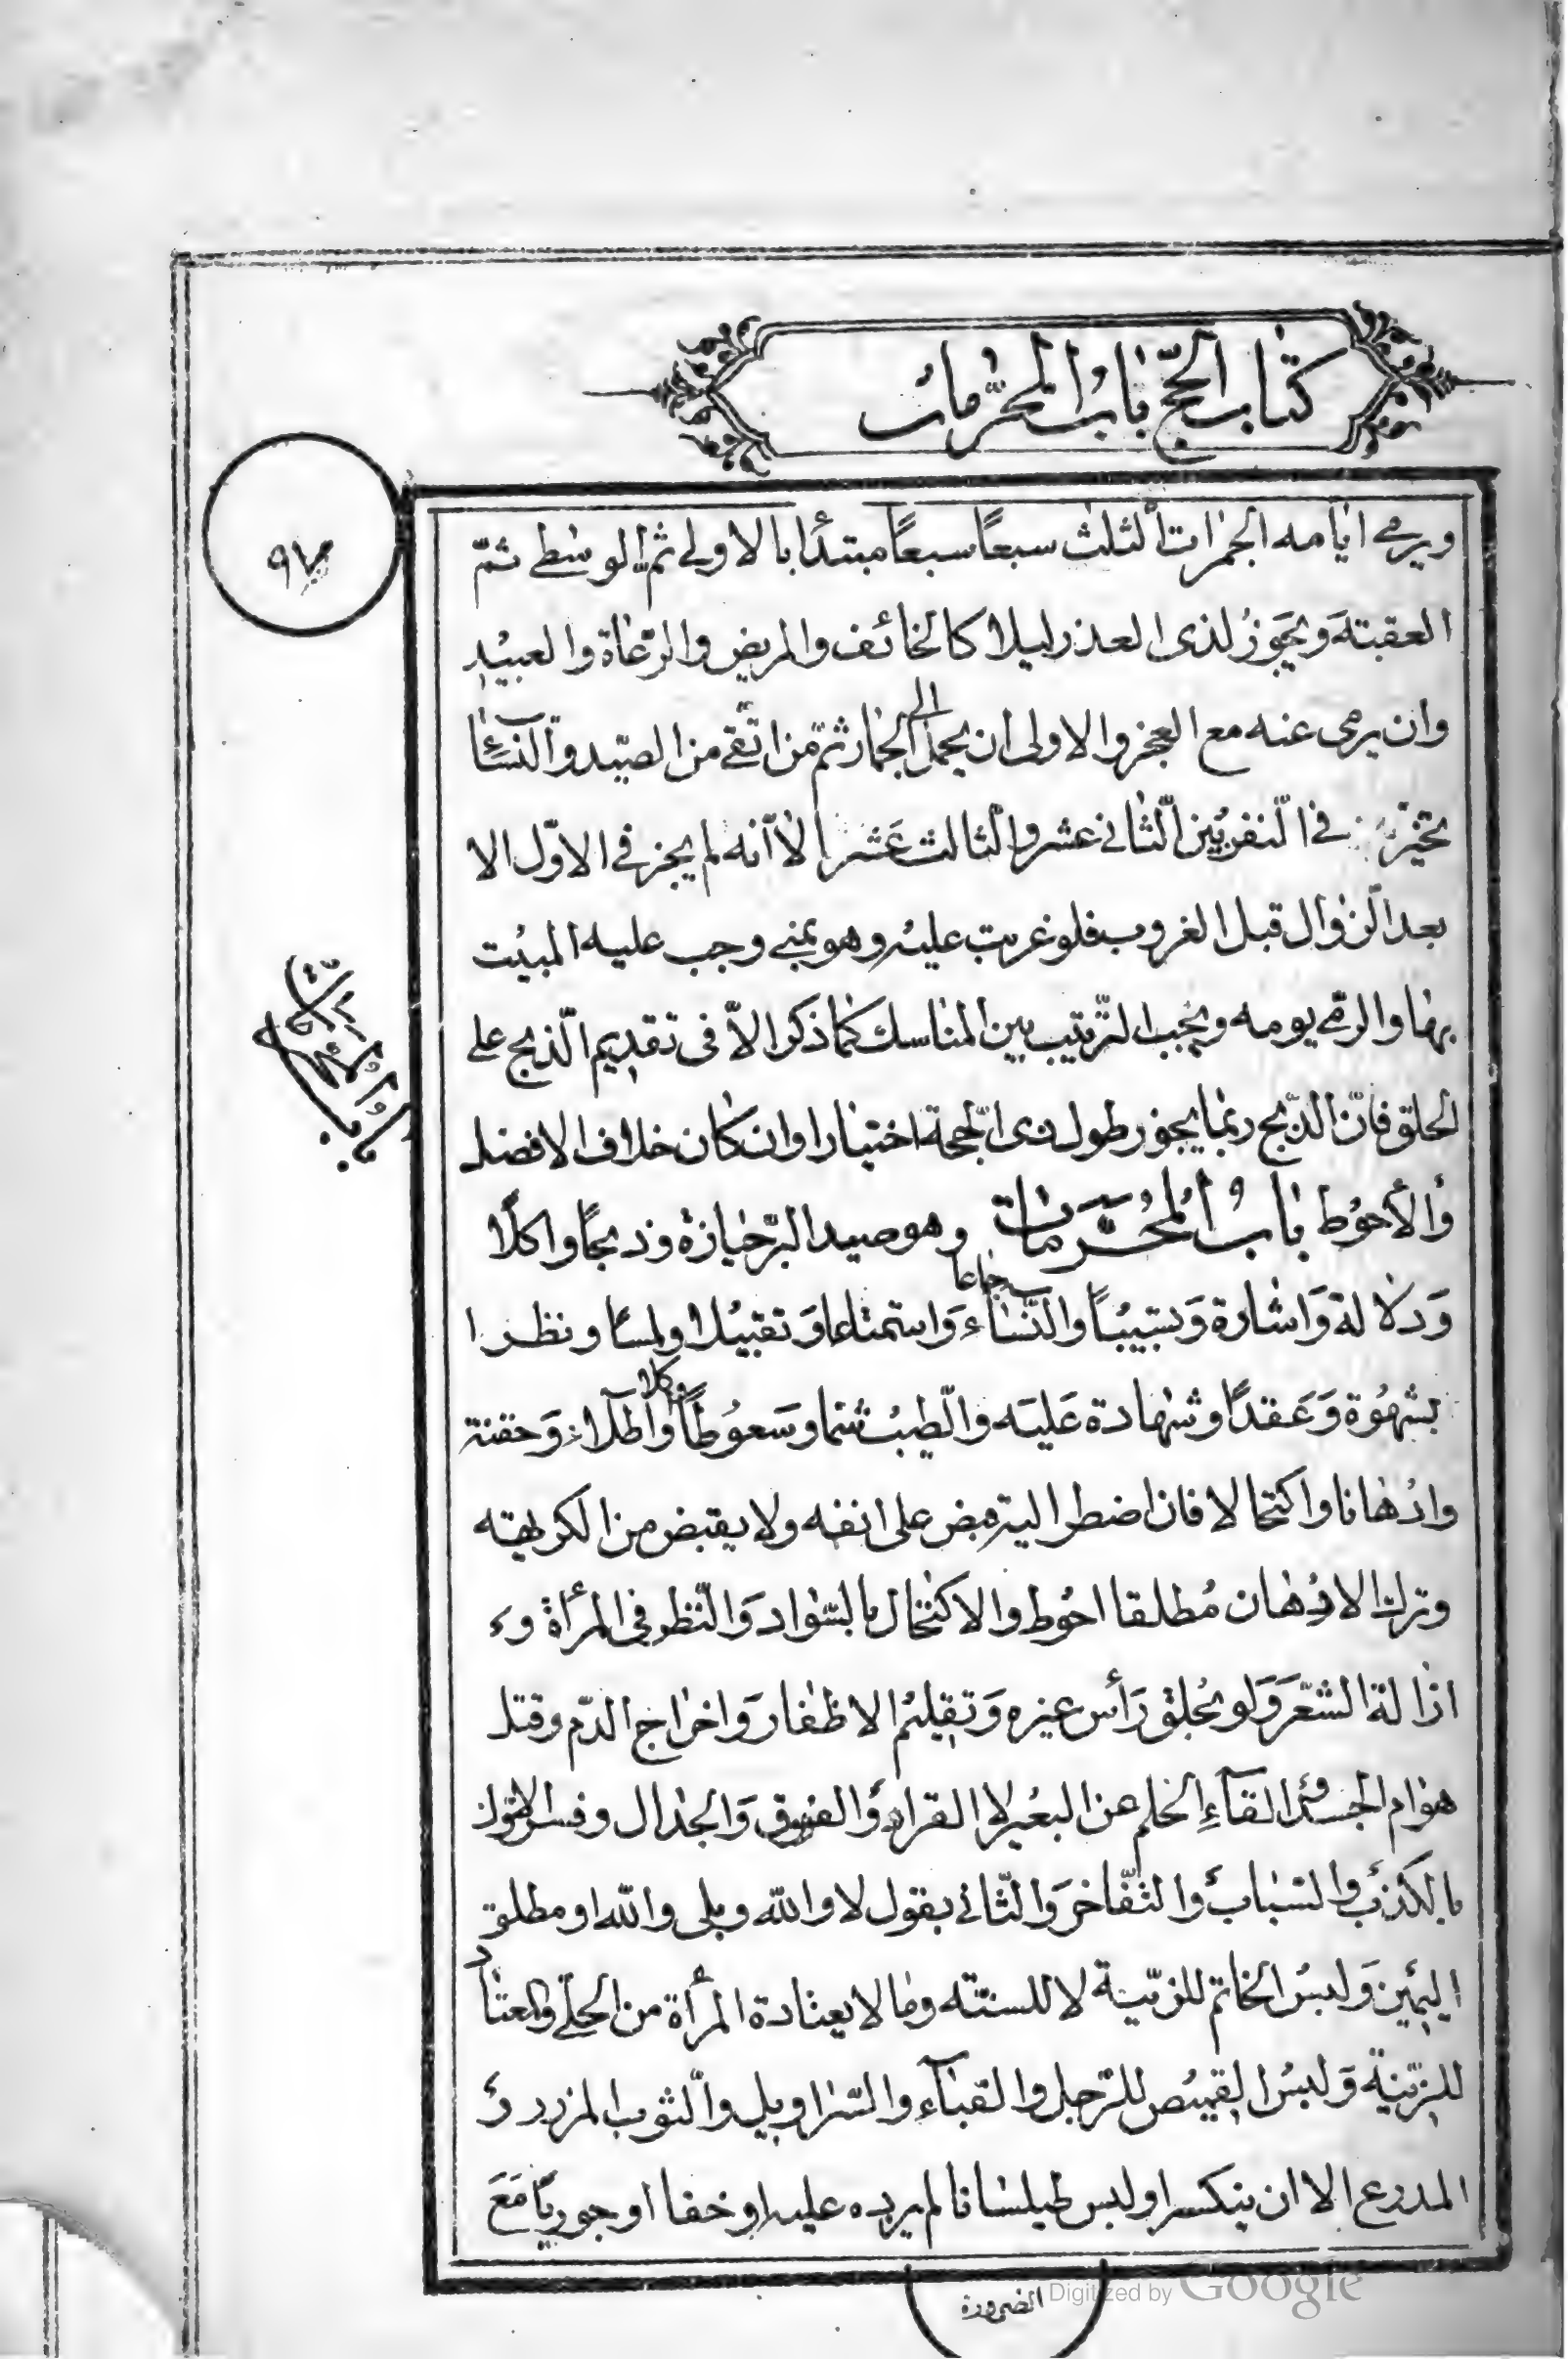 كتاب الحجّ باب المحرّمات
٩٧
ويرمي ايامه الجمرات الثلث سبعاً سبعاً مبتدأ بالاولى ثم الوسطى ثمّ
العقبة ويجوز لذى العذر ليلا كالخائف والمريض والرّعاة والعبيد
وان يرمى عنه مع العجز والاولى ان يحمل الى الجمار ثمّ من اتّقى من الصّيد والنّساء
تخيّر في النّفرين الثّاني عشر والثالث عشر الا انه لم يجز في الاوّل الا
بعد الزّوال قبل الغروب فلو غربت عليه وهو بمنى وجب عليه المبيت
بها والرّمي يومه ويجب التّرتيب بين المناسك كما ذكر الاّ فى تقديم الذّبح على
الحلق فانّ الذّبح ربما يجوز طول ذى الحجّة اختيارا وان كان خلاف الافضل
والأحوط باب المحرّمات وهو صيد البرّ حيازة وذبحاً واكلاً
باب المحرّمات
ودلالة واشارة وتسبيباً والنّساء جماعا واستمتاعا وتقبيلا ولمسا ونظرا
بشهوة وعقداً وشهادة عليه والطّيب شمّا وسعوطاً واكلا واطلاء وحقنة
وادهانا واكتحالا فان اضطر اليه قبض على انفه ولا يقبض من الكريهة
وترك الادهان مطلقا احوط والاكتحال بالسّواد والنّظر فى المرأة و
ازالة الشّعر ولو بحلق رأس غيره وتقليم الاظفار واخراج الدّم وقتل
هوام الجسد والقاء الحلم عن البعير لا القراد والفسوق والجدال وفسر الاوّل
بالكذب والسّباب والتّفاخر والثّاني بقول لا والله وبلى والله او مطلق
اليمين ولبس الخاتم للزّينة لا للسنّة وما لا يعتاده المرأة من الحلي والمعتاد
للزّينة ولبس القميص للرّجل والقباء والسّراويل والثّوب المزرر و
المدرع الا ان ينكسر او لبس طيلسانا لم يزره عليه او خفا او جوربا مع
الضرورة
Digitized by Google